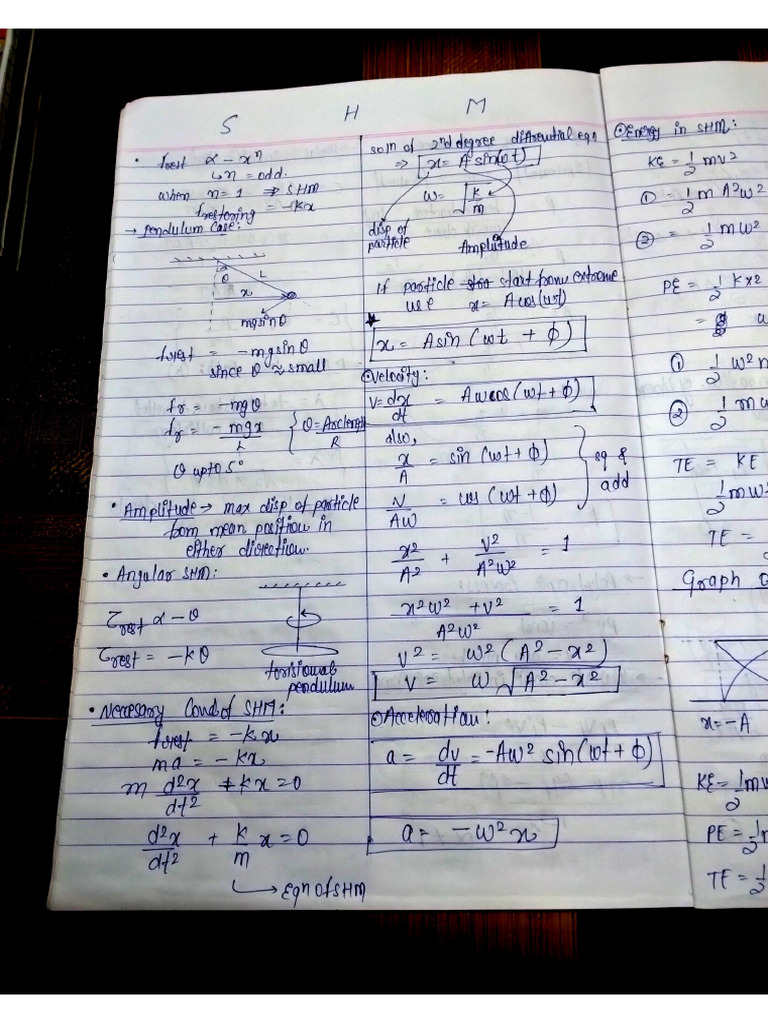 S H M
• frest α - xⁿ
↳ n = odd.
when n = 1 ⇒ SHM
frestoring = -Kx
→ Pendulum Case:
θ L
x
mg sinθ
frest = - mg sinθ
since θ ≈ small
fr = - mgθ
fr = - mgx/L { θ = Arc length/R
θ upto 5°
• Amplitude → max disp of particle
from mean position in
either direction.
• Angular SHM:
τrest α - θ
τrest = - kθ
torisional
pendulum
• Necessary Cond of SHM:
frest = - kx
ma = - kx
m d²x/dt² + kx = 0
d²x/dt² + k/m x = 0
↳ Eqn of SHM
soln of 2nd degree differential eqn
⇒ x = A sin(ωt)
ω = √(k/m)
disp of
particle
Amplitude
if particle start from extreme
use x = A cos(ωt)
x = A sin(ωt + φ)
⊙ Velocity:
v = dx/dt = Aω cos(ωt + φ)
also,
x/A = sin(ωt + φ)
v/Aω = cos(ωt + φ)
} sq &
add
x²/A² + v²/A²ω² = 1
x²ω² + v²/A²ω² = 1
v² = ω²(A² - x²)
v = ω√(A² - x²)
⊙ Acceleration:
a = dv/dt = -Aω² sin(ωt + φ)
a = - ω²x
⊙ Energy in SHM:
KE = 1/2 mv²
① = 1/2 m A²ω²
② = 1/2 mω²
PE = 1/2 Kx²
=
① 1/2 ω²
② 1/2 mω
TE = KE
1/2 mω²
TE =
Graph
x = -A
KE = 1/2 mω
PE = 1/2
TE = 1/2